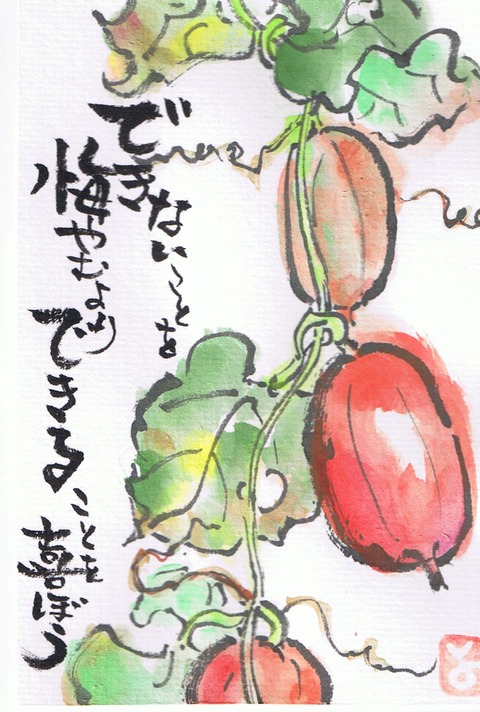 できないことを
悔やむより
できることを
喜ぼう